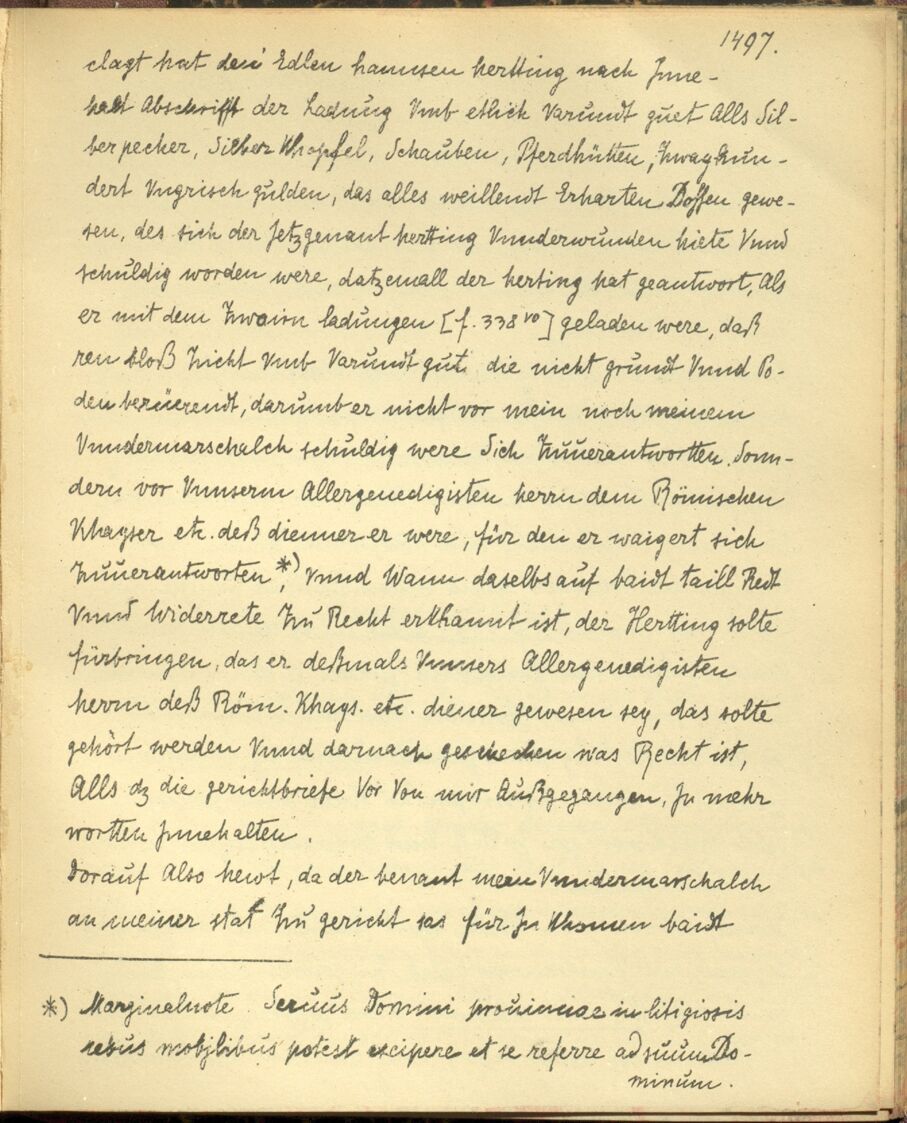 1497.
clagt hat den Edlen hannsen hertting nach Jnne-
halt Abschrifft der Ladung Vmb etlich Varundt guet Alls Sil-
berpecher, Silber Khnopfel, Schauben, Pferdhütten, Zway hun-
dert Vngrisch gulden, das alles weillendt Erharten Dossen gewe-
sen, des sich der Jetzgenant hertting Vnnderwunden hiete Vnnd
schuldig worden were, datzemall der herting hat geantwort, Als
er mit dem Zwairn ladungen [f. 338 vo] geladen were, daß
ren bloß Zicht Vmb Varundt gut die nicht grundt Vnnd Po-
den berüerendt, darumb er nicht vor mein noch meinem
Vnndermarschalch schuldig were Sich Zuuerantwortten. Sonn-
dern vor Vnnserm Allergenedigisten herrn dem Römischen
Khayser etc. deß dienner er were, für den er waigert sich
Zuuerantworten *), Vnnd Wann daselbs auf baidt taill Redt
Vnnd Widerrete Zu Recht erkhannt ist, der Hertting solte
fürbringen, das er deßmals Vnnsers Allergenedigisten
herrn deß Röm. Khays. etc. diener gewesen sey, das solte
gehört werden Vnnd darnach geschechen was Recht ist,
Alls dz die gerichtbriefe Vor Von mir Außgegangen, Jn mehr
wortten Jnnehalten.
Dorauf Also hewt, da der benant mein Vnndermarschalch
an meiner stat Zu gericht sas für Jn Khomen baidt
*) Marginalnote Seruus Domini prouinciae in litigiosis
rebus mobjlibus potest excipere et se referre ad suum Do-
minum.